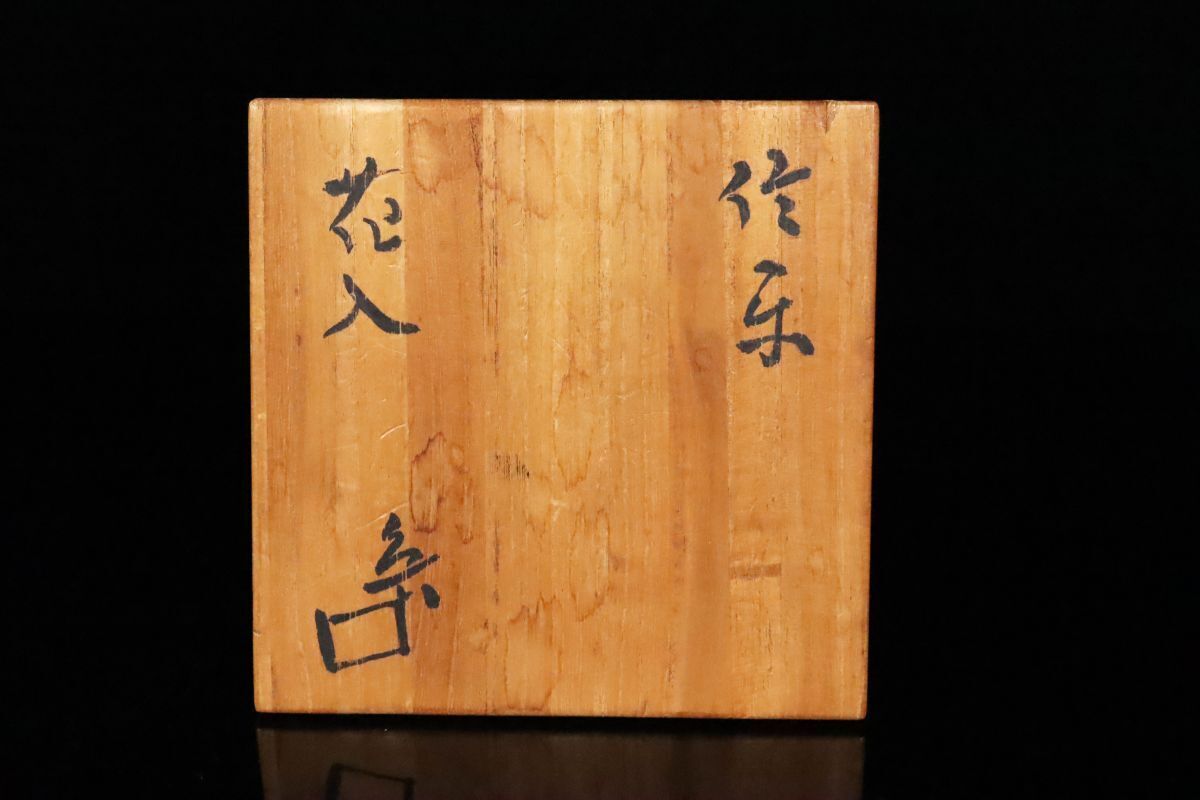 信楽
花入